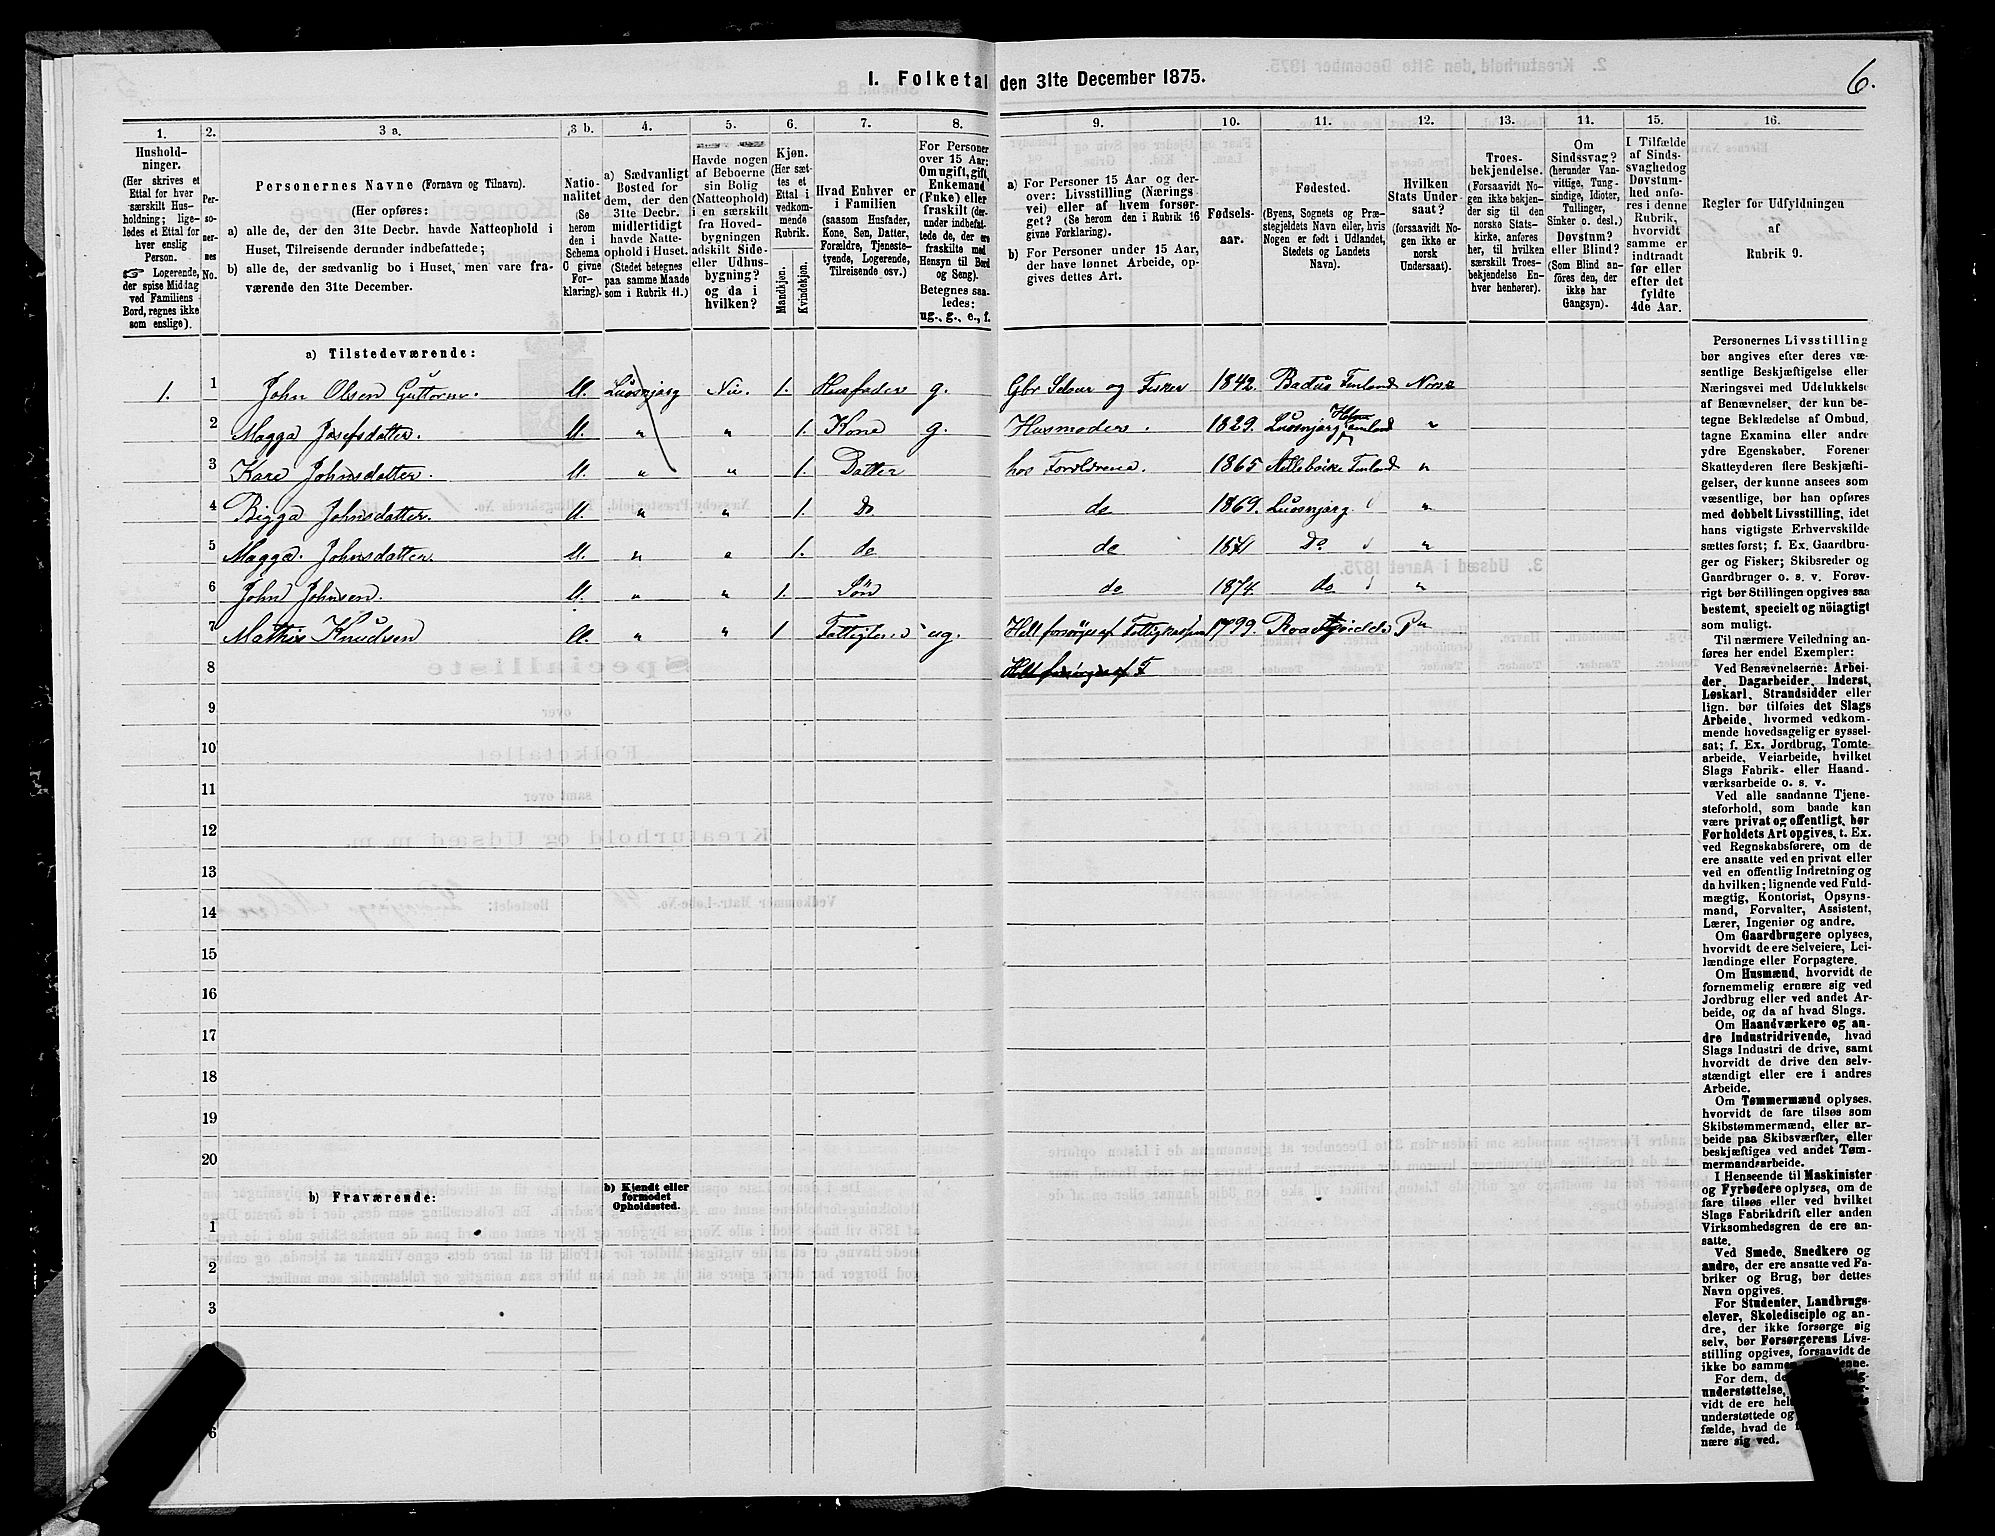 I. Folketal den 31te December 1875.
6.
1.
Hushold-
ninger.
(Her skrives et
Ettal for hver
særskilt Hus-
holdning; lige-
ledes et Ettal for
hver enslig
Person.
☞ Logerende,
der spise Middag
ved Familiens
Bord, regnes ikke
som enslige).
2.
Per-
so-
ner-
nes
No.
3 a.
Personernes Navne (Fornavn og Tilnavn).
(Her opføres:
a) alle de, der den 31te Decbr. havde Natteophold i
Huset, Tilreisende derunder indbefattede;
b) alle de, der sædvanlig bo i Huset, men vare fra-
værende den 31te December.
3 b.
Natio-
nalitet
(Se
herom
den i
Schema
C givne
For-
klaring).
4.
a) Sædvanligt
Bosted for
dem, der den
31te Decbr.
midlertidigt
havde Natte-
ophold i Huset.
(Stedet betegnes
paa samme Maade
som i Rubrik 11.)
5.
Havde nogen
af Beboerne
sin Bolig
(Natteophold)
i en særskilt
fra Hoved-
bygningen
adskilt Side-
eller Udhus-
bygning?
og da i
hvilken?
6.
Kjøn.
(Her sæt-
tes et
Ettal i
vedkom-
mende
Rubrik.
Mandkjøn.
Kvindekjøn.
7.
Hvad Enhver er
i Familien
(saasom Husfader,
Kone, Søn, Datter,
Forældre, Tjeneste-
tyende, Logerende,
Tilreisende osv.)
8.
For Personer
over 15 Aar:
Om ugift, gift,
Enkemand
(Enke) eller
fraskilt (der-
under indbefat-
tede de, der ere
fraskilte med
Hensyn til Bord
og Seng).
Betegnes saa-
ledes:
ug., g., e., f.
9.
a) For Personer 15 Aar og der-
over: Livsstilling (Nærings-
vei) eller af hvem forsør-
get? (Se herom den i Rubrik 16
givne Forklaring).
b) For Personer under 15 Aar,
der have lønnet Arbeide, op-
gives dettes Art.
10.
Fødsels-
aar.
11.
Fødested.
(Byens, Sognets og Præ-
stegjeldets Navn eller, hvis
Nogen er født i Udlandet,
Stedets og Landets
Navn).
12.
Hvilken
Stats Under-
saat?
(forsaavidt No-
gen ikke er
norsk
Undersaat).
13.
Troes-
bekjendelse.
(Forsaavidt No-
gen ikke bekjen-
der sig til den
norske Stats-
kirke, anføres
her, til hvilken
særskilt Troes-
bekjendelse En-
hver henhører).
14.
Om
Sindssvag?
(herunder Van-
vittige, Tung-
sindige, Idioter,
Tullinger,
Sinker o. desl.)
Døvstum?
eller Blind?
(Som Blind an-
føres den, der
ikke har
Gangsyn).
15.
I Tilfælde
af Sinds-
svaghed og
Døvstum-
hed anfø-
res i denne
Rubrik,
hvorvidt
samme er
indtraadt
før eller
efter det
fyldte
4de Aar.
16.
Regler for Udfyldningen
af
Rubrik 9.
a) Tilstedeværende:
1. 1 John Olsen Guttorm. Nei. 1. Husfader g. og Fisker 1842. Finland Norsk
2 Magga Josefsdatter. „ „ 1. Kone g. Husmoder. 1829. „
3 Kare Johnsdatter. „ „ 1. Datter hos Forældrene. 1865 Finland „
4 Bigga Johnsdatter. „ „ 1. Do de 1869. „
5 Magga Johnsdatter. „ „ 1. de de 1871 Do „
6 John Johnsen. „ „ 1. Søn de 1874. do „
7 Mathis Knudsen „ „ 1 ug. Helt forsørges af 1799.
8 Helt forsørges af F
9
10
11
12
13
14
15
16
17
18
19
20
b) Fraværende:
b) Kjendt eller
formodet
Opholdssted.
1
2
3
6
Personernes Livsstilling
bør angives efter deres væ-
sentlige Beskjæftigelse eller
Næringsvei med Udelukkelse
af Benævnelser, der kun be-
tegne Beklædelse af Ombud,
tagne Examina eller andre
ydre Egenskaber. Forener
Skatteyderen flere Beskjæfti-
gelser, der kunne ansees som
væsentlige, bør han opføres
med dobbelt Livsstilling, idet
hans vigtigste Erhvervskilde
sættes først; f. Ex. Gaardbru-
ger og Fisker; Skibsreder og
Gaardbruger o. s. v. Forøv-
rigt bør Stillingen opgives saa
bestemt, specielt og nøiagtigt
som muligt.
Til nærmere Veiledning an-
føres her endel Exempler:
Ved Benævnelserne: Arbei-
der, Dagarbeider, Inderst,
Løskarl, Strandsidder eller
lign. bør tilføies det Slags
Arbeide, hvormed vedkom-
mende hovedsagelig er syssel-
sat; f. Ex. Jordbrug, Tomte-
arbeide, Veiarbeide, hvilket
Slags Fabrik- eller Haand-
værksarbeide o. s. v.
Ved alle saadanne Tjene-
steforhold, som baade kan
være privat og offentligt, bør
Forholdets Art opgives, t. Ex.
ved Regnskabsførere, om de
ere ansatte ved en privat eller
ved en offentlig Indretning og
da hvilken; lignende ved Fuld-
mægtig, Kontorist, Opsyns-
mand, Forvalter, Assistent,
Lærer, Ingeniør og andre.
Om Gaardbrugere oplyses,
hvorvidt de ere Selveiere, Lei-
lændinge eller Forpagtere.
Om Husmænd, hvorvidt de
fornemmelig ernære sig ved
Jordbrug eller ved andet Ar-
beide, og da af hvad Slags.
Om Haandværkere og an-
dre Industridrivende, hvad
Slags Industri de drive, samt
hvorvidt de drive den selv-
stændigt eller ere i andres
Arbeide.
Om Tømmermænd oplyses,
hvorvidt de fare tilsøs som
Skibstømmermænd, eller ar-
beide paa Skibsværfter, eller
beskjæftiges ved andet Tøm-
mermandsarbeide.
I Henseende til Maskinister
og Fyrbødere oplyses, om de
fare tilsøs eller ved hvilket
Slags Fabrikdrift eller anden
Virksomhedsgren de ere an-
satte.
Ved Smede, Snedkere og
andre, der ere ansatte ved Fa-
briker og Brug, bør dettes
Navn opgives.
For Studenter, Landbrugs-
elever, Skoledisciple og an-
dre, der ikke forsørge sig
selv, bør Forsørgerens Livs-
stilling opgives, forsaavidt de
ikke bo sammen
For dem,
understøttelse,
vidt de ere
understøttede og
fælde, hvad de
nære sig ved.